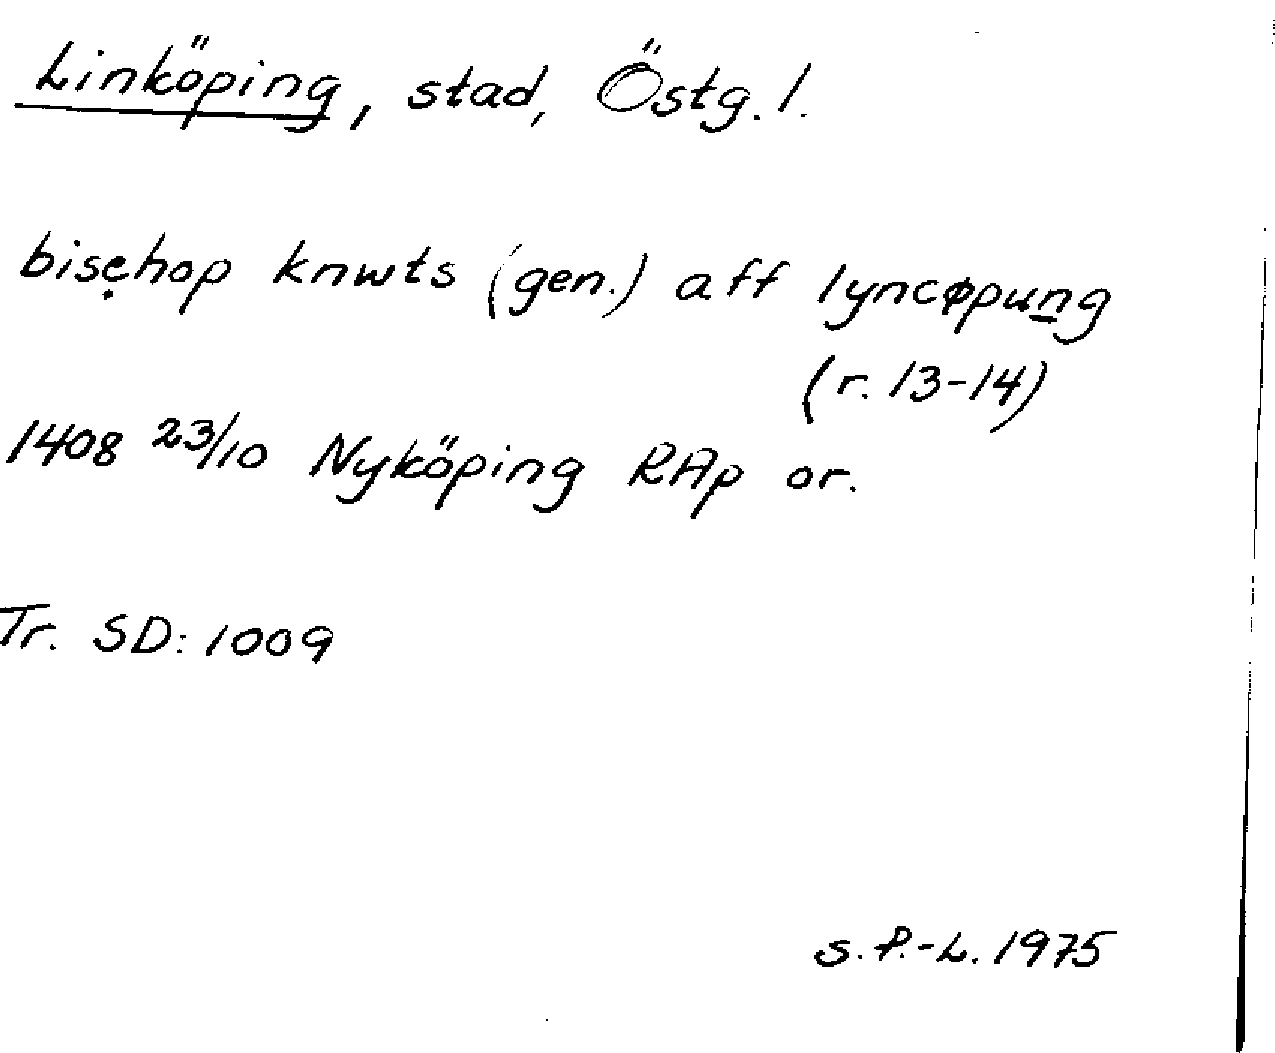 Linköping, stad, Östg. l.
bisc̣hop knwts (gen.) aff lyncøpun̲g
(r. 13-14)
1408 23/10 Nyköping RAp or.
Tr. SD: 1009
S. P.-L. 1975